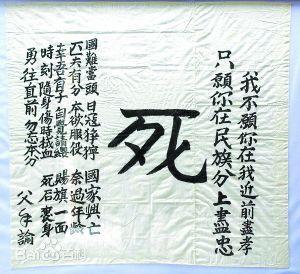 我不愿你在我近前尽孝
只愿你在民族分上尽忠
死
國難當頭 日寇猙獰 國家興亡
匹夫有分 本欲服役 奈過年齡
幸吾有子 自覺請纓 賜旗一面
時刻隨身 傷時拭血 死後裹身
勇往直前 勿忘本分
父手諭
Baidu百科